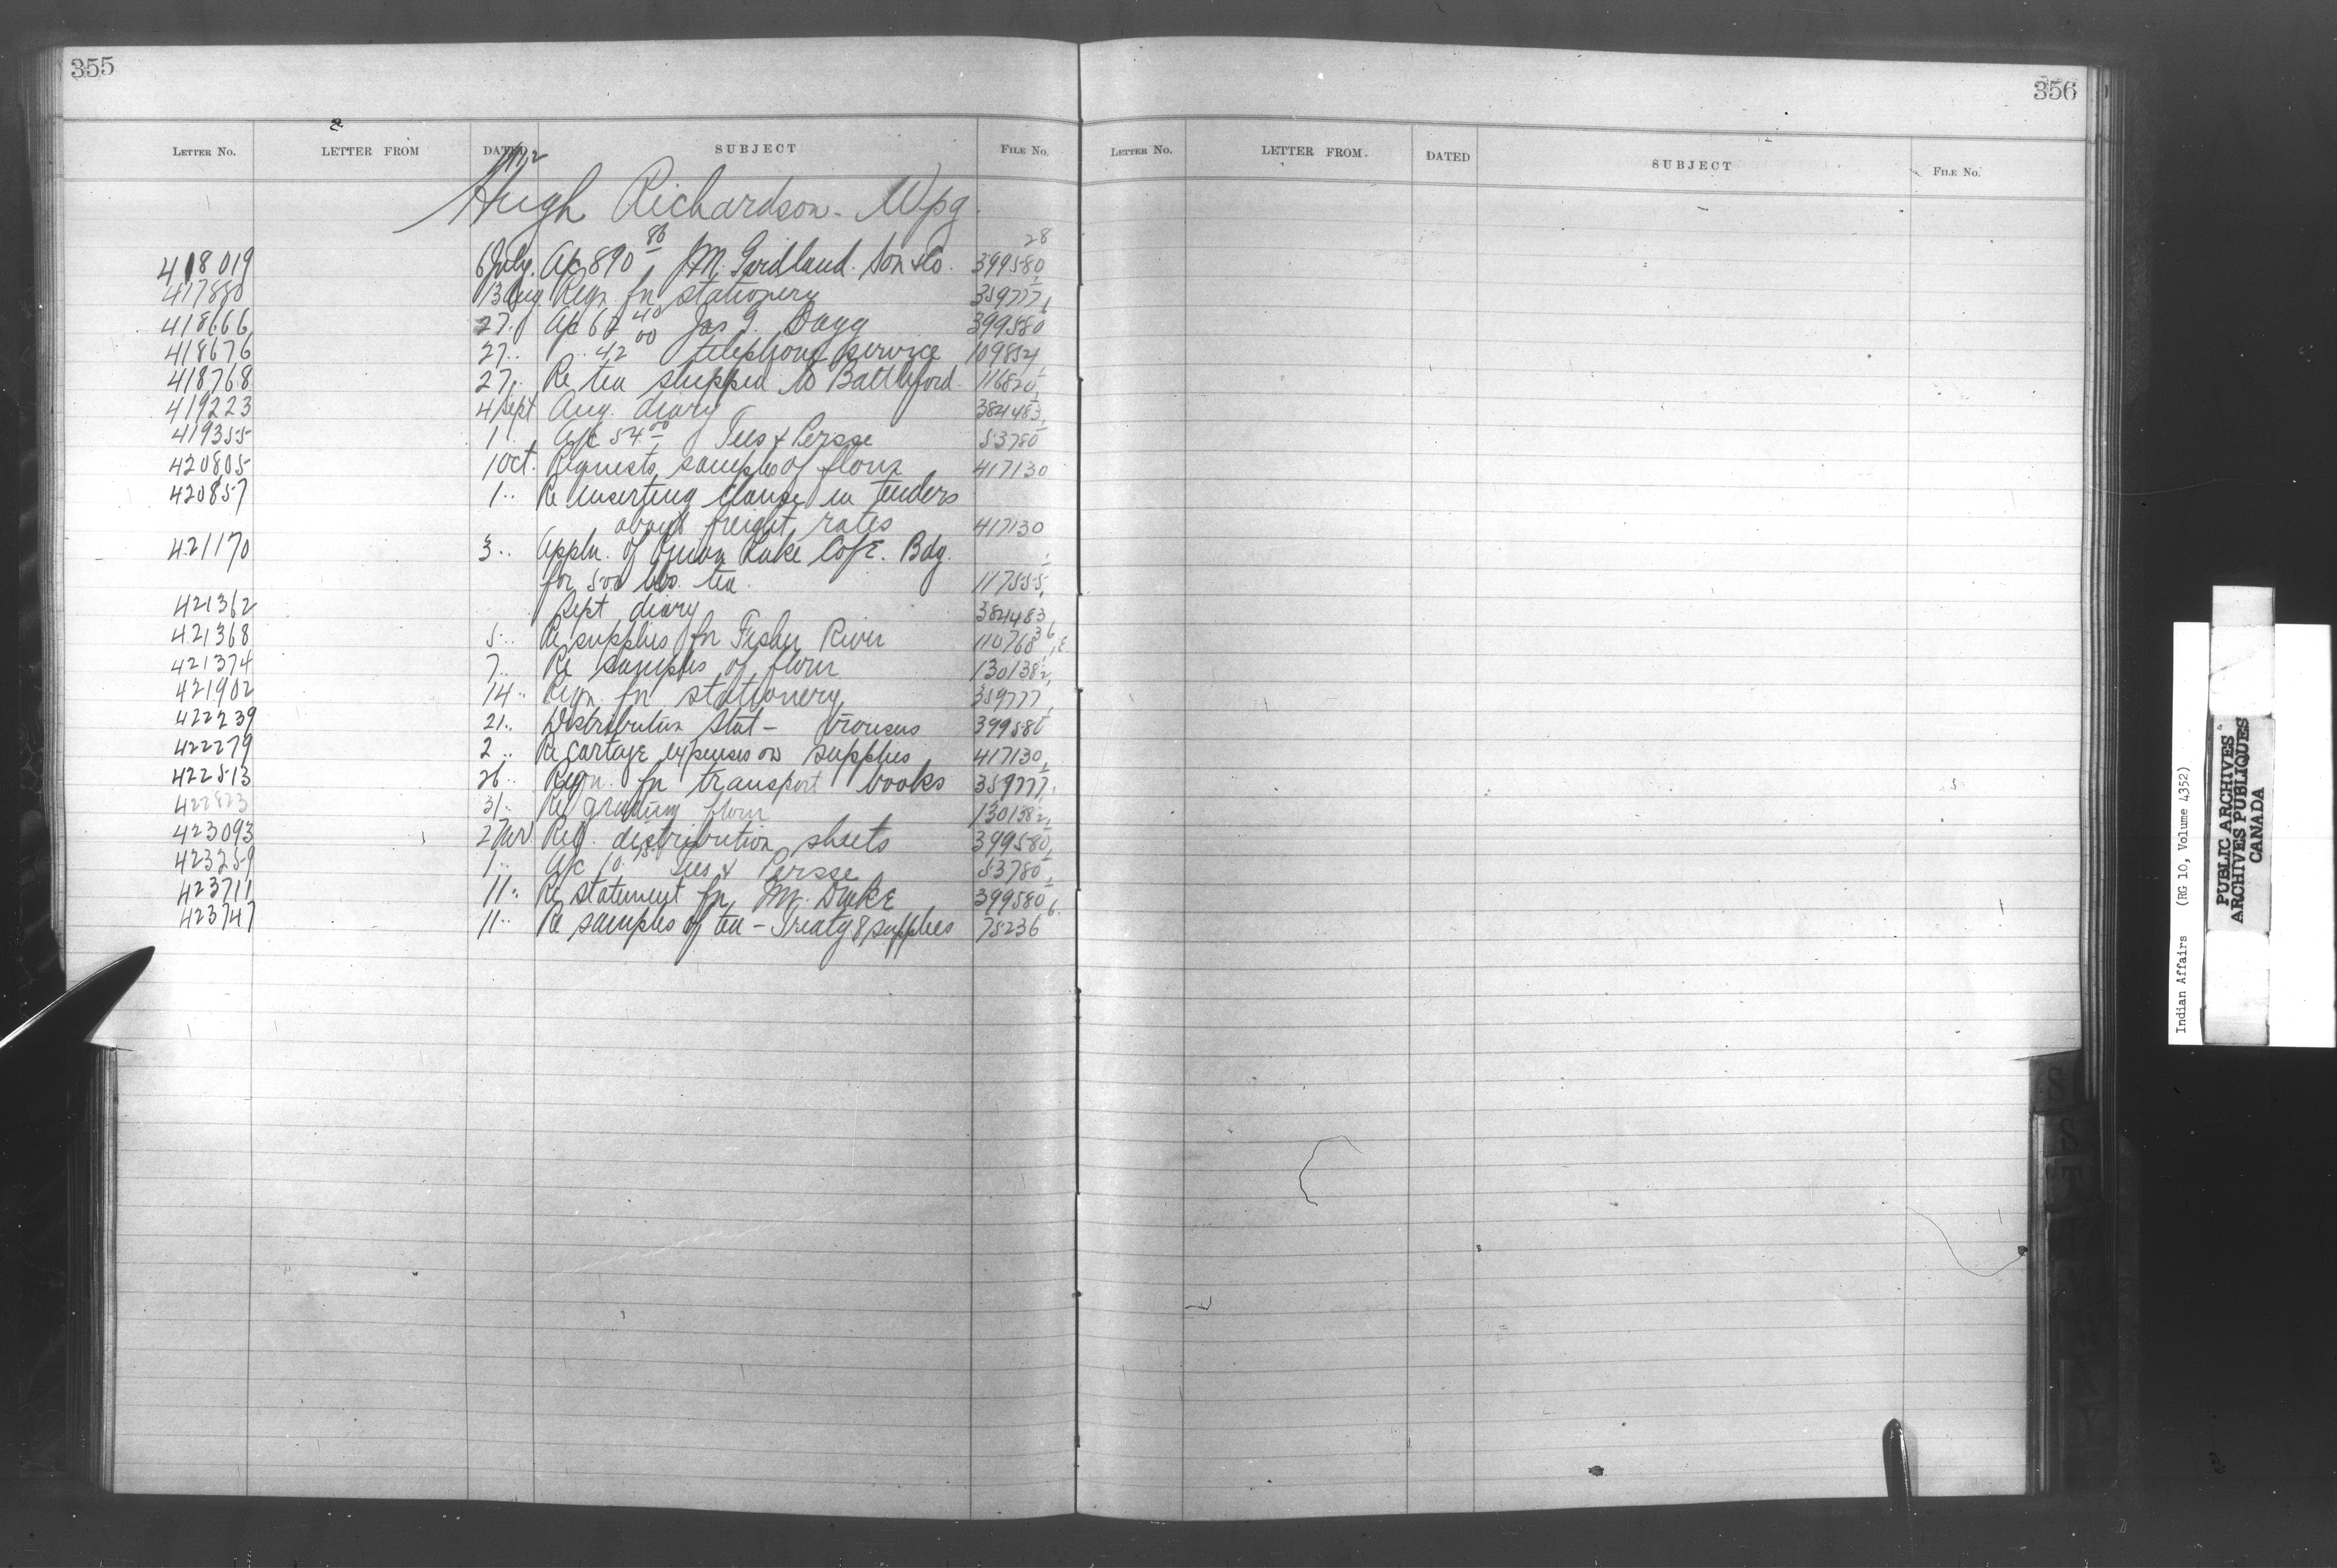 355
LETTER NO. LETTER FROM DATED SUBJECT FILE NO.
Hugh Richardson - Wpg.
418019 6 July. A/c 890 86 J.M. Garland. Son & Co. 399580 28
417880 13 Aug Reqn. for stationery 359777
418666 27.. A/c 62 40 Jas G. Dagg 399580
418676 27.. .. 42 00 telephone service 109854
418768 27.. Re tea shipped to Battleford. 116820
419223 4 Sept Aug. diary 384483
419355 1.. A/c 54 00 Tees & Persse 53780
420805 1 Oct. Requests samples of flour 417130
420857 1.. Re inserting clause in tenders
about freight rates 417130
421170 3.. Appln. of Onion Lake CofE. Bdg.
for 500 lbs. tea. 117555
421362 Sept diary 384483
421368 5.. Re supplies for Fisher River 110768 36
421374 7.. Re samples of flour 130138 2
421902 14.. Reqn. for stationery 359777
422239 21.. Distribution Stat - trousers 399580
422279 2.. Re cartage expenses on supplies 417130
422513 26.. Reqn. for transport books 359777
422823 31.. Re grading flour 130138 2
423093 2 Nov. Req. distribution sheets 399580
423259 1.. A/c 10. Tees & Persse 53780
423711 11.. Re statement for Mr. Duke 399580
423747 11.. Re samples of tea - Treaty & supplies 75236
356
LETTER NO. LETTER FROM. DATED SUBJECT FILE NO.
Indian Affairs (RG 10, Volume 4352)
PUBLIC ARCHIVES
ARCHIVES PUBLIQUES
CANADA